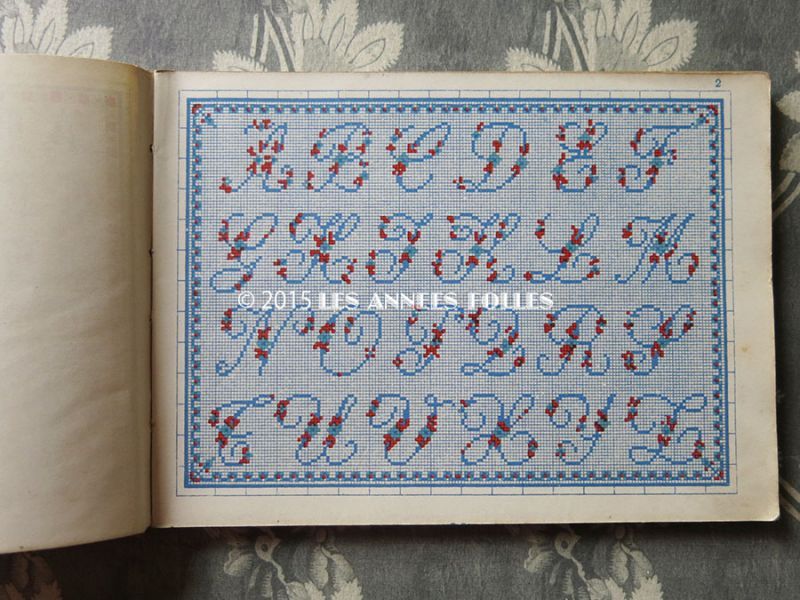 2
A B C D E F
G H I K L M
© 2015 LES ANNEES FOLLES
N O P Q R S
T U V X Y Z